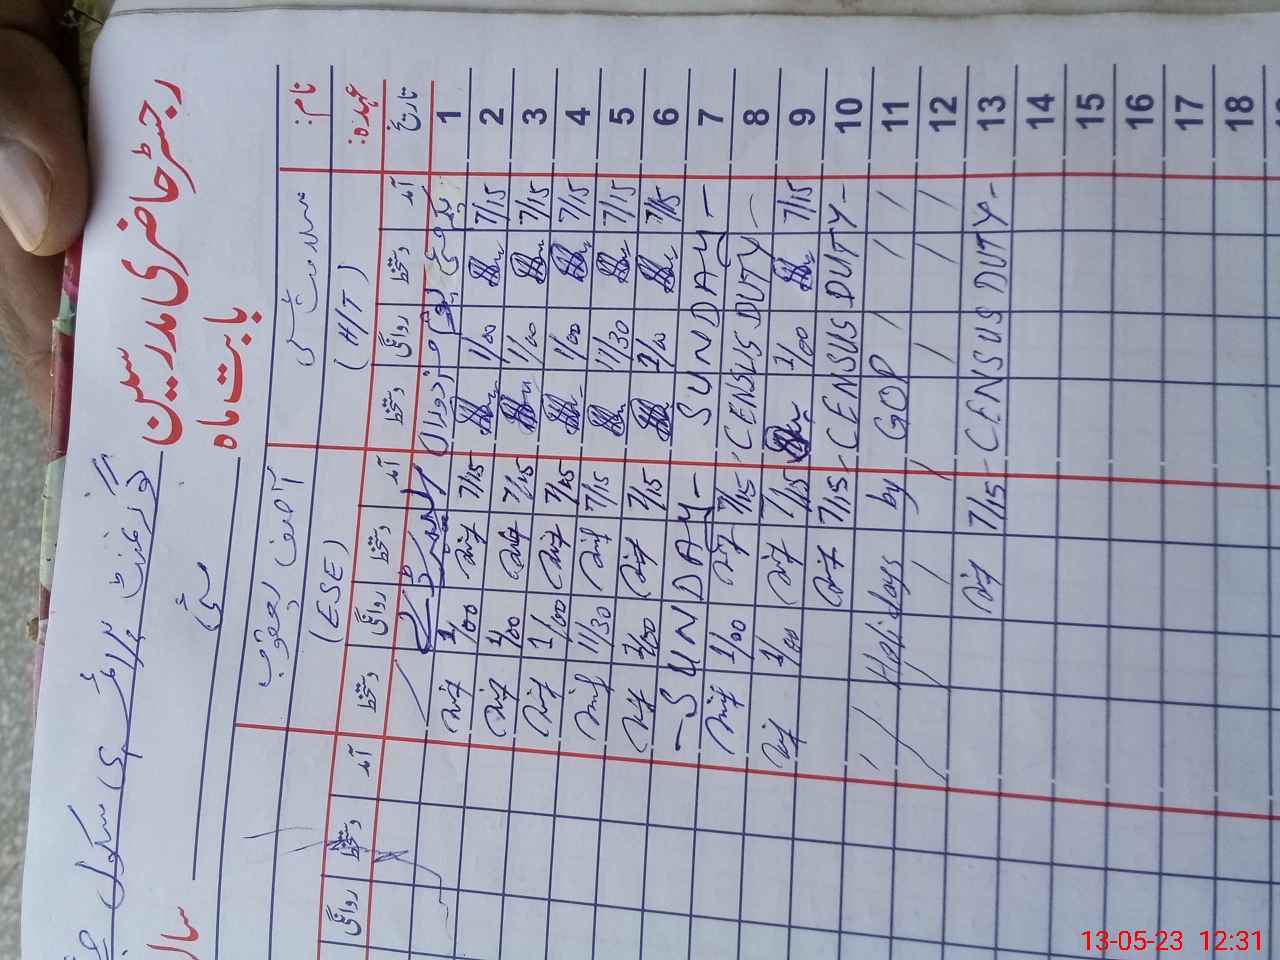 گورنمنٹ پرائمری سکول
رجسٹر حاضری مدرسین
بابت ماہ مئی
سال
نام: سلامت مسیح آصف یعقوب
عہدہ: (H/T) (ESE)
تاریخ آمد دستخط روانگی دستخط آمد دستخط روانگی دستخط آمد دستخط روانگی
1
2 7/15 1/00 7/15 1/00
3 7/15 1/00 7/15 1/00
4 7/15 1/00 7/15 1/00
5 7/15 11/30 7/15 11/30
6 7/15 1/00 7/15 1/00
7 SUNDAY - - SUNDAY -
8 CENSUS DUTY - 7/15 1/00
9 7/15 1/00 7/15 1/00
10 CENSUS DUTY - 7/15
11 Holidays by GOP
12
13 CENSUS DUTY - 7/15
14
15
16
17
18
13-05-23 12:31